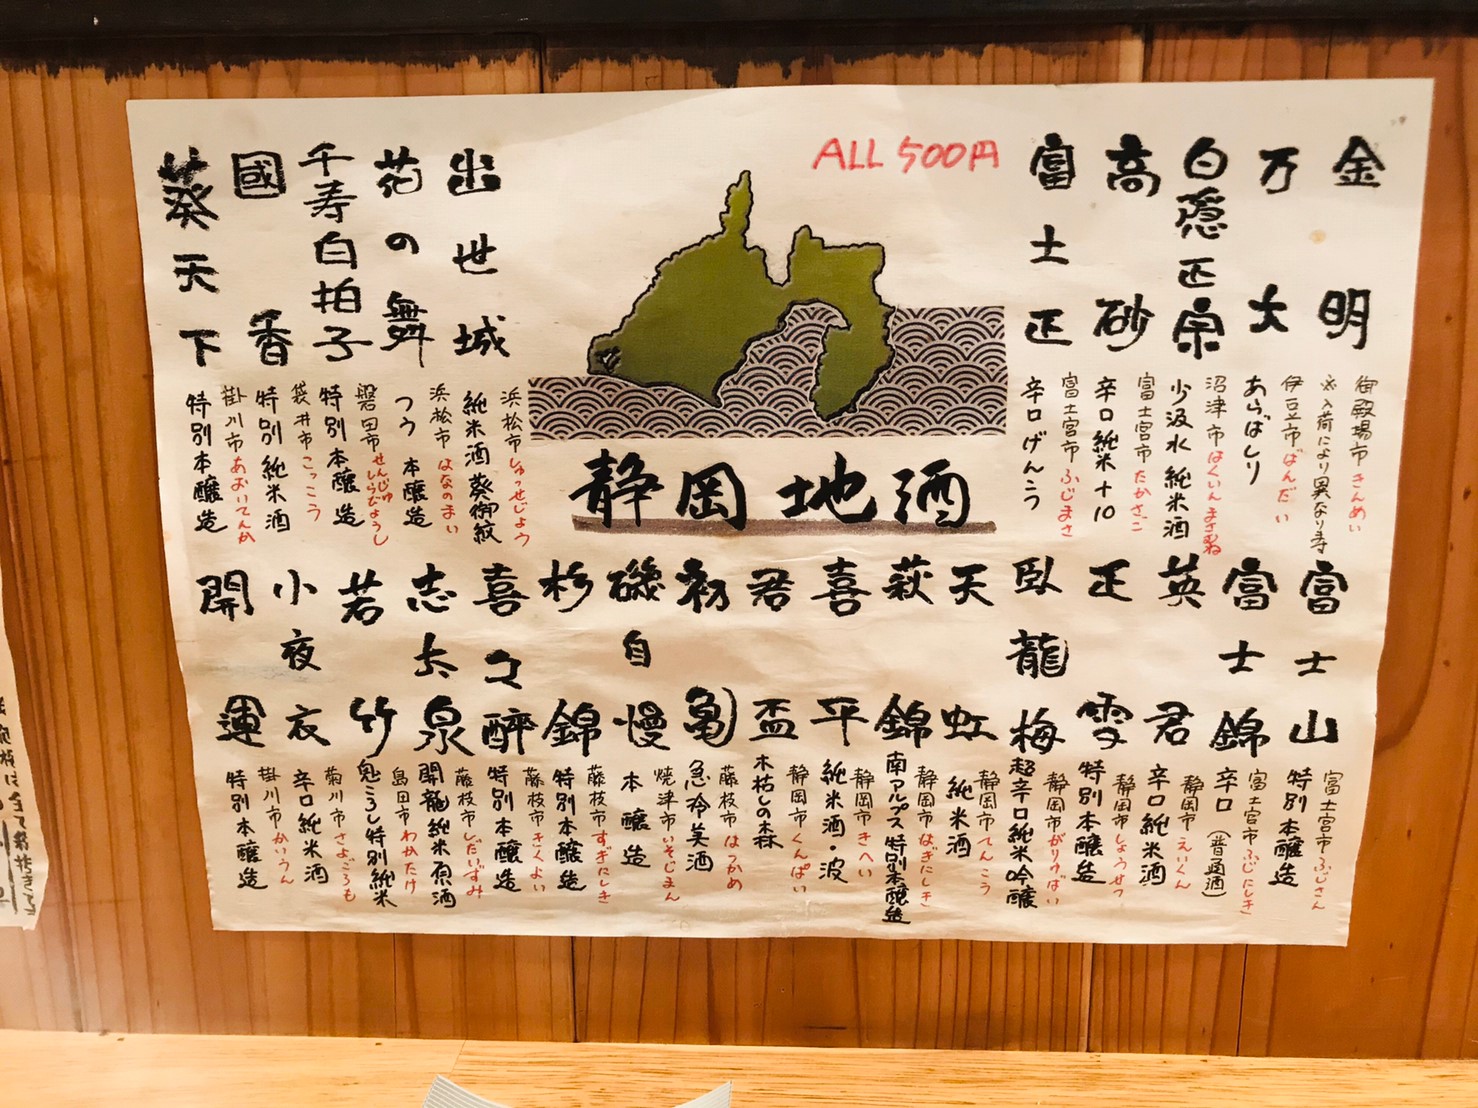 ALL 500円
金明
御殿場市 きんめい
※入荷により異なり寿
万大
伊豆市 ばんだい
あらばしり
白隠正宗
沼津市 はくいんまさむね
少汲水 純米酒
高砂
富士宮市 たかさご
辛口純米+10
富士正
富士宮市 ふじまさ
辛口げんこつ
出世城
浜松市 しゅっせじょう
純米酒 葵御紋
花の舞
浜松市 はなのまい
つう 本醸造
千寿白拍子
磐田市 せんじゅしらびょうし
特別本醸造
國香
袋井市 こっこう
特別純米酒
葵天下
掛川市 あおいてんか
特別本醸造
静岡地酒
富士山
富士宮市 ふじさん
特別本醸造
富士錦
富士宮市 ふじにしき
辛口(普通酒)
英君
静岡市 えいくん
辛口純米酒
正雪
静岡市 しょうせつ
特別本醸造
臥龍梅
静岡市 がりゅうばい
超辛口純米吟醸
天虹
静岡市 てんこう
純米酒
萩錦
静岡市 はぎにしき
南アルプス特別本醸造
喜平
静岡市 きへい
純米酒・波
君盃
静岡市 くんぱい
木枯しの森
初亀
藤枝市 はつかめ
急冷美酒
磯自慢
焼津市 いそじまん
本醸造
杉錦
藤枝市 すぎにしき
特別本醸造
喜久醉
藤枝市 きくよい
特別本醸造
志太泉
藤枝市 しだいずみ
開龍純米原酒
若竹
島田市 わかたけ
鬼ころし特別純米
小夜衣
菊川市 さよごろも
辛口純米酒
開運
掛川市 かいうん
特別本醸造